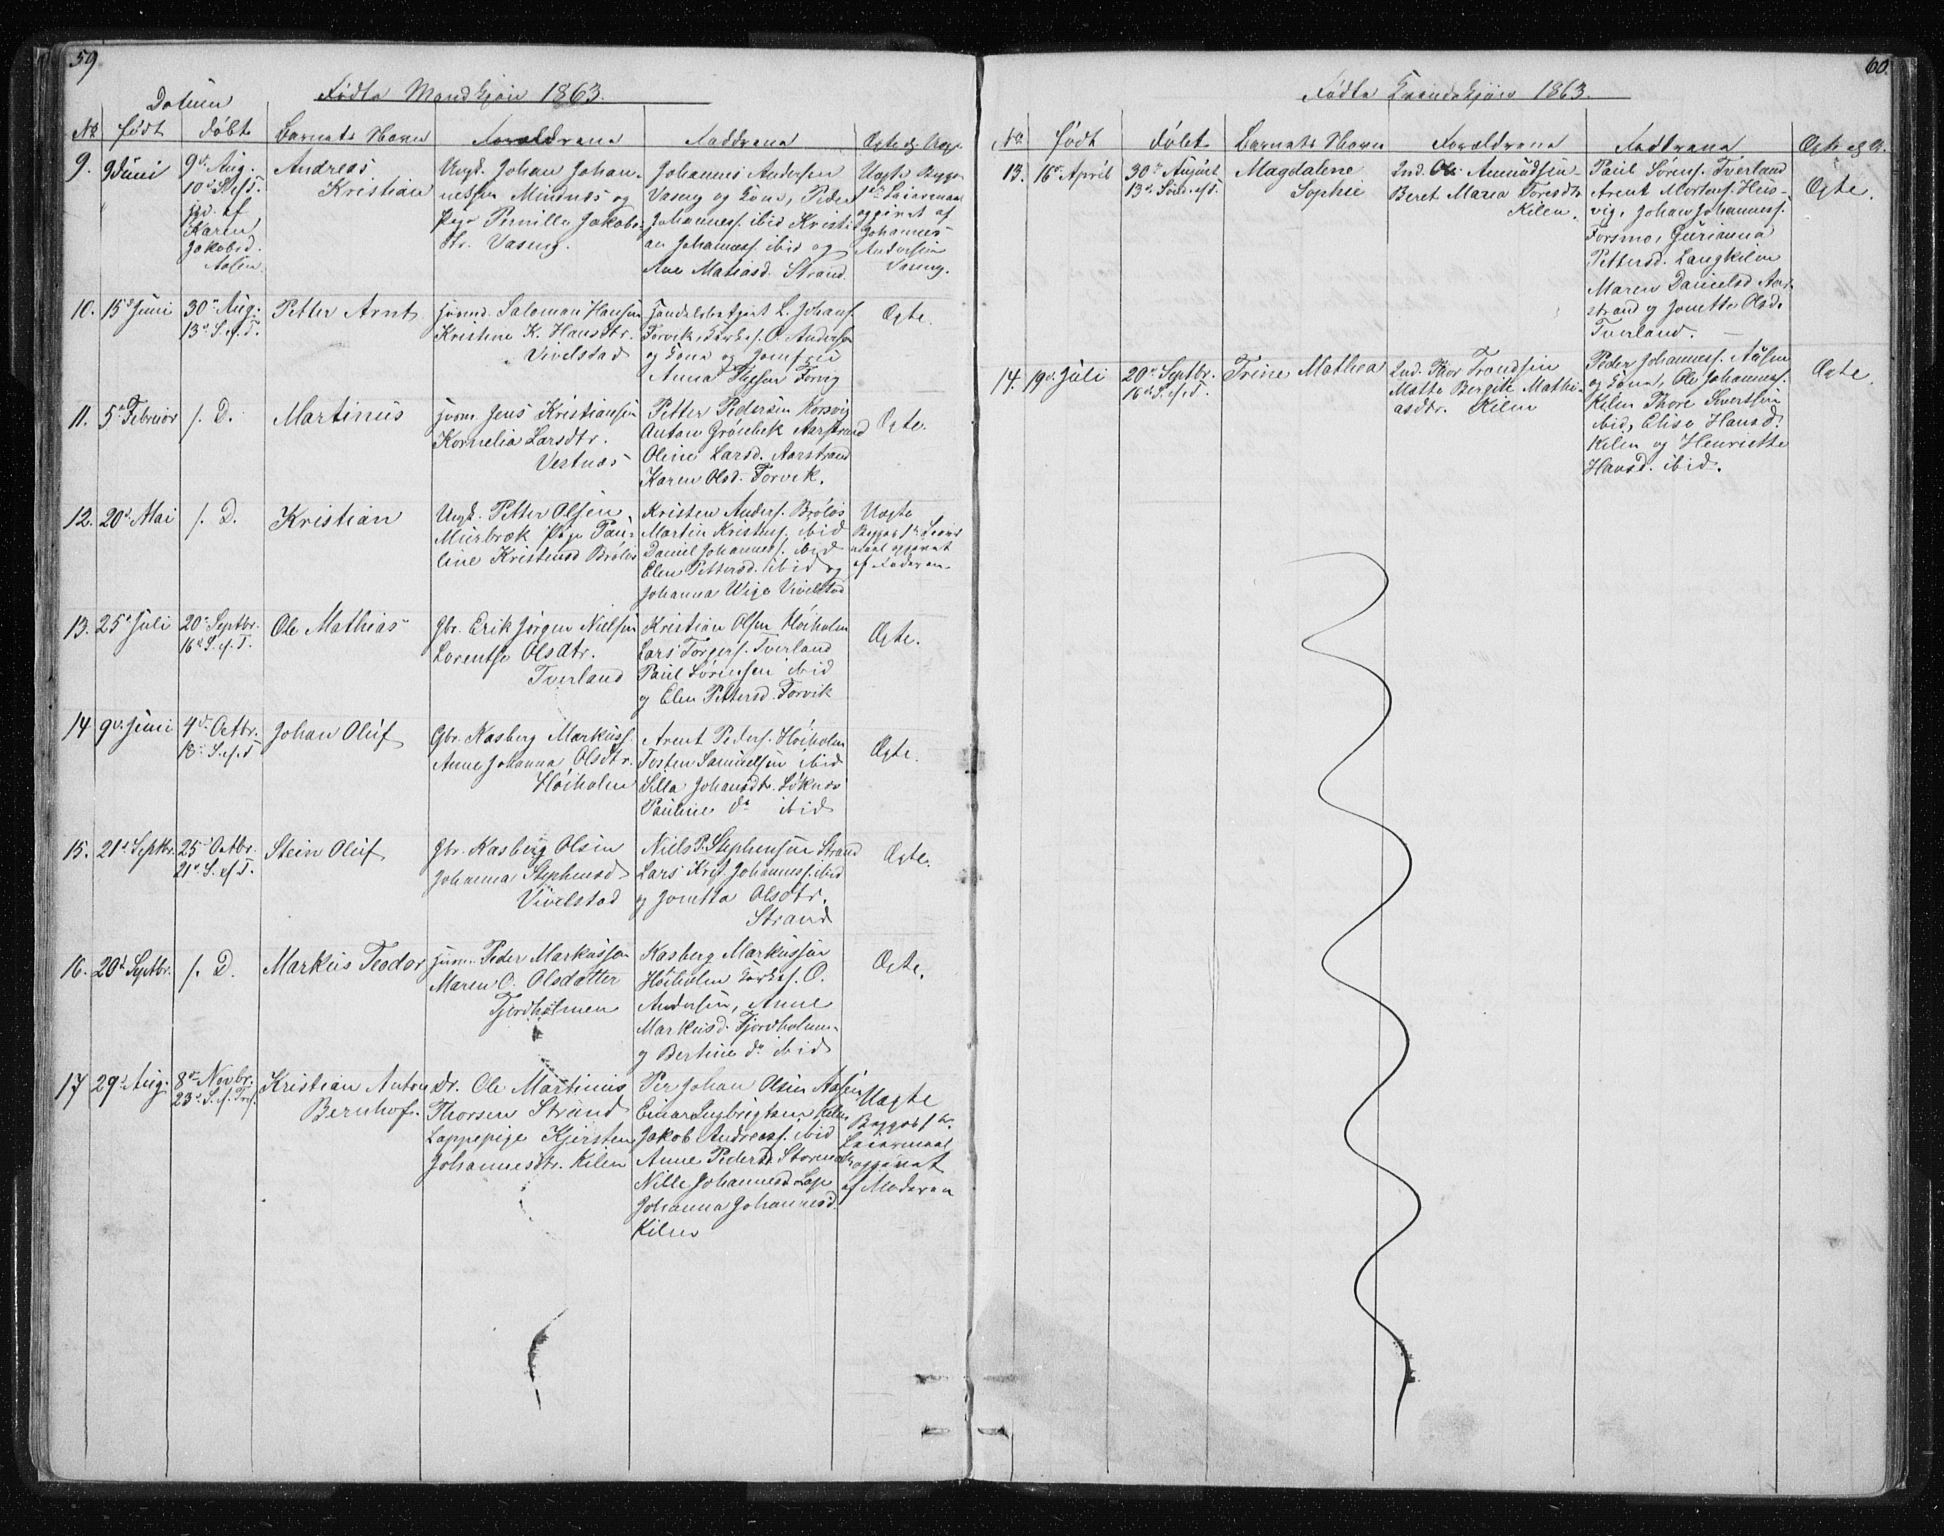 59
Fødte Mandkjøn 1863.
Datum
No født døbt Barnets Navn Forældrene Fadderne Ægte og Uægte
9. 9 Juni 9de Aug. 10de S.e.T. jvd. af Karen Jakobsd. Aasen
Andreas
Kristian
Ungk. Johan Johan-
nessen Mindnes og
Pige Pernille Jakobs-
dtr. Vaseng.
Johannes Andersen
Vaseng og Kone, Peder
Johanness. ibid Kristi-
an Johanness. ibid og
Ane Matiasd. Strand.
Uægte Begges
1ste Leiermaal
opgivet af
Johannes
Andersen
Vaseng.
10. 15de Juni 30te Aug.
13de S.e.T.
Petter Arnt
Huusmd. Salomon Hansen
Kristine K. Hansdtr.
Vivelstad
Handelsbetjent L. Johans.
Forvik, Kirkes. O. Andersen
og Kone og Jomfru
Anna Forvig
Ægte.
11. 5te Februar /. D. Martinus
Huusm. Jens Kristiansen
Kornelia Larsdtr.
Vestnes
Petter Pedersen Korsvig
Anton Grönbek Aarstrand
Oline Larsd. Aarstrand
Karen Olsd. Forvik.
Ægte.
12. 20de Mai /. D. Kristian
Ungk. Petter Olsen
Murbræk Pige Pau-
line Kristensd Bröløs
Kristen Anders. Bröløs
Martin Kristens. ibid
Daniel Johanness. ibid
Elen Pettersd. ibid og
Johanna Wige Vivelstad
Uægte
Begges 1ste Leier
maal opgivet
af Faderen.
13. 25de Juli 20de Septbr.
16de S.e.T.
Ole Mathias
Gbr. Erik Jørgen Nielsen
Lorentse Olsdtr.
Tverland
Kristian Olsen Høiholm
Lars Torgers. Tverland
Paul Sörensen ibid
og Elen Pettersd. Forvik
Ægte.
14 9de Juni 4de Octbr.
18de S.e.T
Johan Oluf
Gbr. Kasberg Markuss.
Anne Johanna Olsdtr.
Høiholm
Arent Peders. Høiholm
Torsten Samuelsen ibid
Silla Johansdtr. Söknes
Pauline do ibid
Ægte.
15. 21de Septbr. 25de Octbr.
21de S.e.T.
Stein Oluf
Gbr. Kasberg Olsen
Johanna Stephensd
Vivelstad
Niels P. Stephensen Strand
Lars Krist. Johanness. ibid
og Jonetta Olsdtr.
Strand
Ægte.
16. 20de Septbr. /. D. Markus Teodor
Huusm. Peder Markussen
Maren O. Olsdatter
Fjordholmen
Kasberg Markussen
Høiholm Kirkes. O.
Andersen, Anne
Markusd. Fjordholmen
og Bertine do ibid
Ægte.
17 29de Aug. 8de Novbr.
23de S.e.Tref.
Kristian Anton
Bernhof.
Dr. Ole Martinus
Thorsen Strand
Lappepige Kjersten
Johannesdtr. Kilen
Per Johan Olsen Aasen
Einar Ingbrigtsen Kilen
Jakob Andreass. ibid
Anne Pedersd.
Nille Johannesd Lap
Johanna Johannesd.
Kilen
Uægte
Begges 1ste
Leiermaal
opgivet
af Moderen
60.
Fødte Qvindekjøn 1863.
No. født døbt Barnets Navn Forældrene Faddrene Ægte og U.
13. 16de April 30te August
13de Sönd. e.T.
Magdalene
Sophie
Ind. Ole Amundsen
Beret Maria Toresdtr
Kilen.
Paul Sörens. Tverland
Arent Mortens. Hus-
vig, Johan Johanness.
Forsmo, Gurianna
Pettersd. Langkilen
Maren Danielsd Aar-
strand og Jonetta Olsd.
Tverland.
Ægte.
14. 19de Juli 20de Septbr.
16de S.e.T.
Trine Mathea
Ind. Thor Trondsen
Mette Bergitte Mathi-
asdtr. Kilen
Peder Johanness. Aasen
og Kone, Ole Johanness.
Kilen Thore Sivertsen
ibid, Elise Hansd.
Kilen og Henriette
Hansd. ibid.
Ægte.